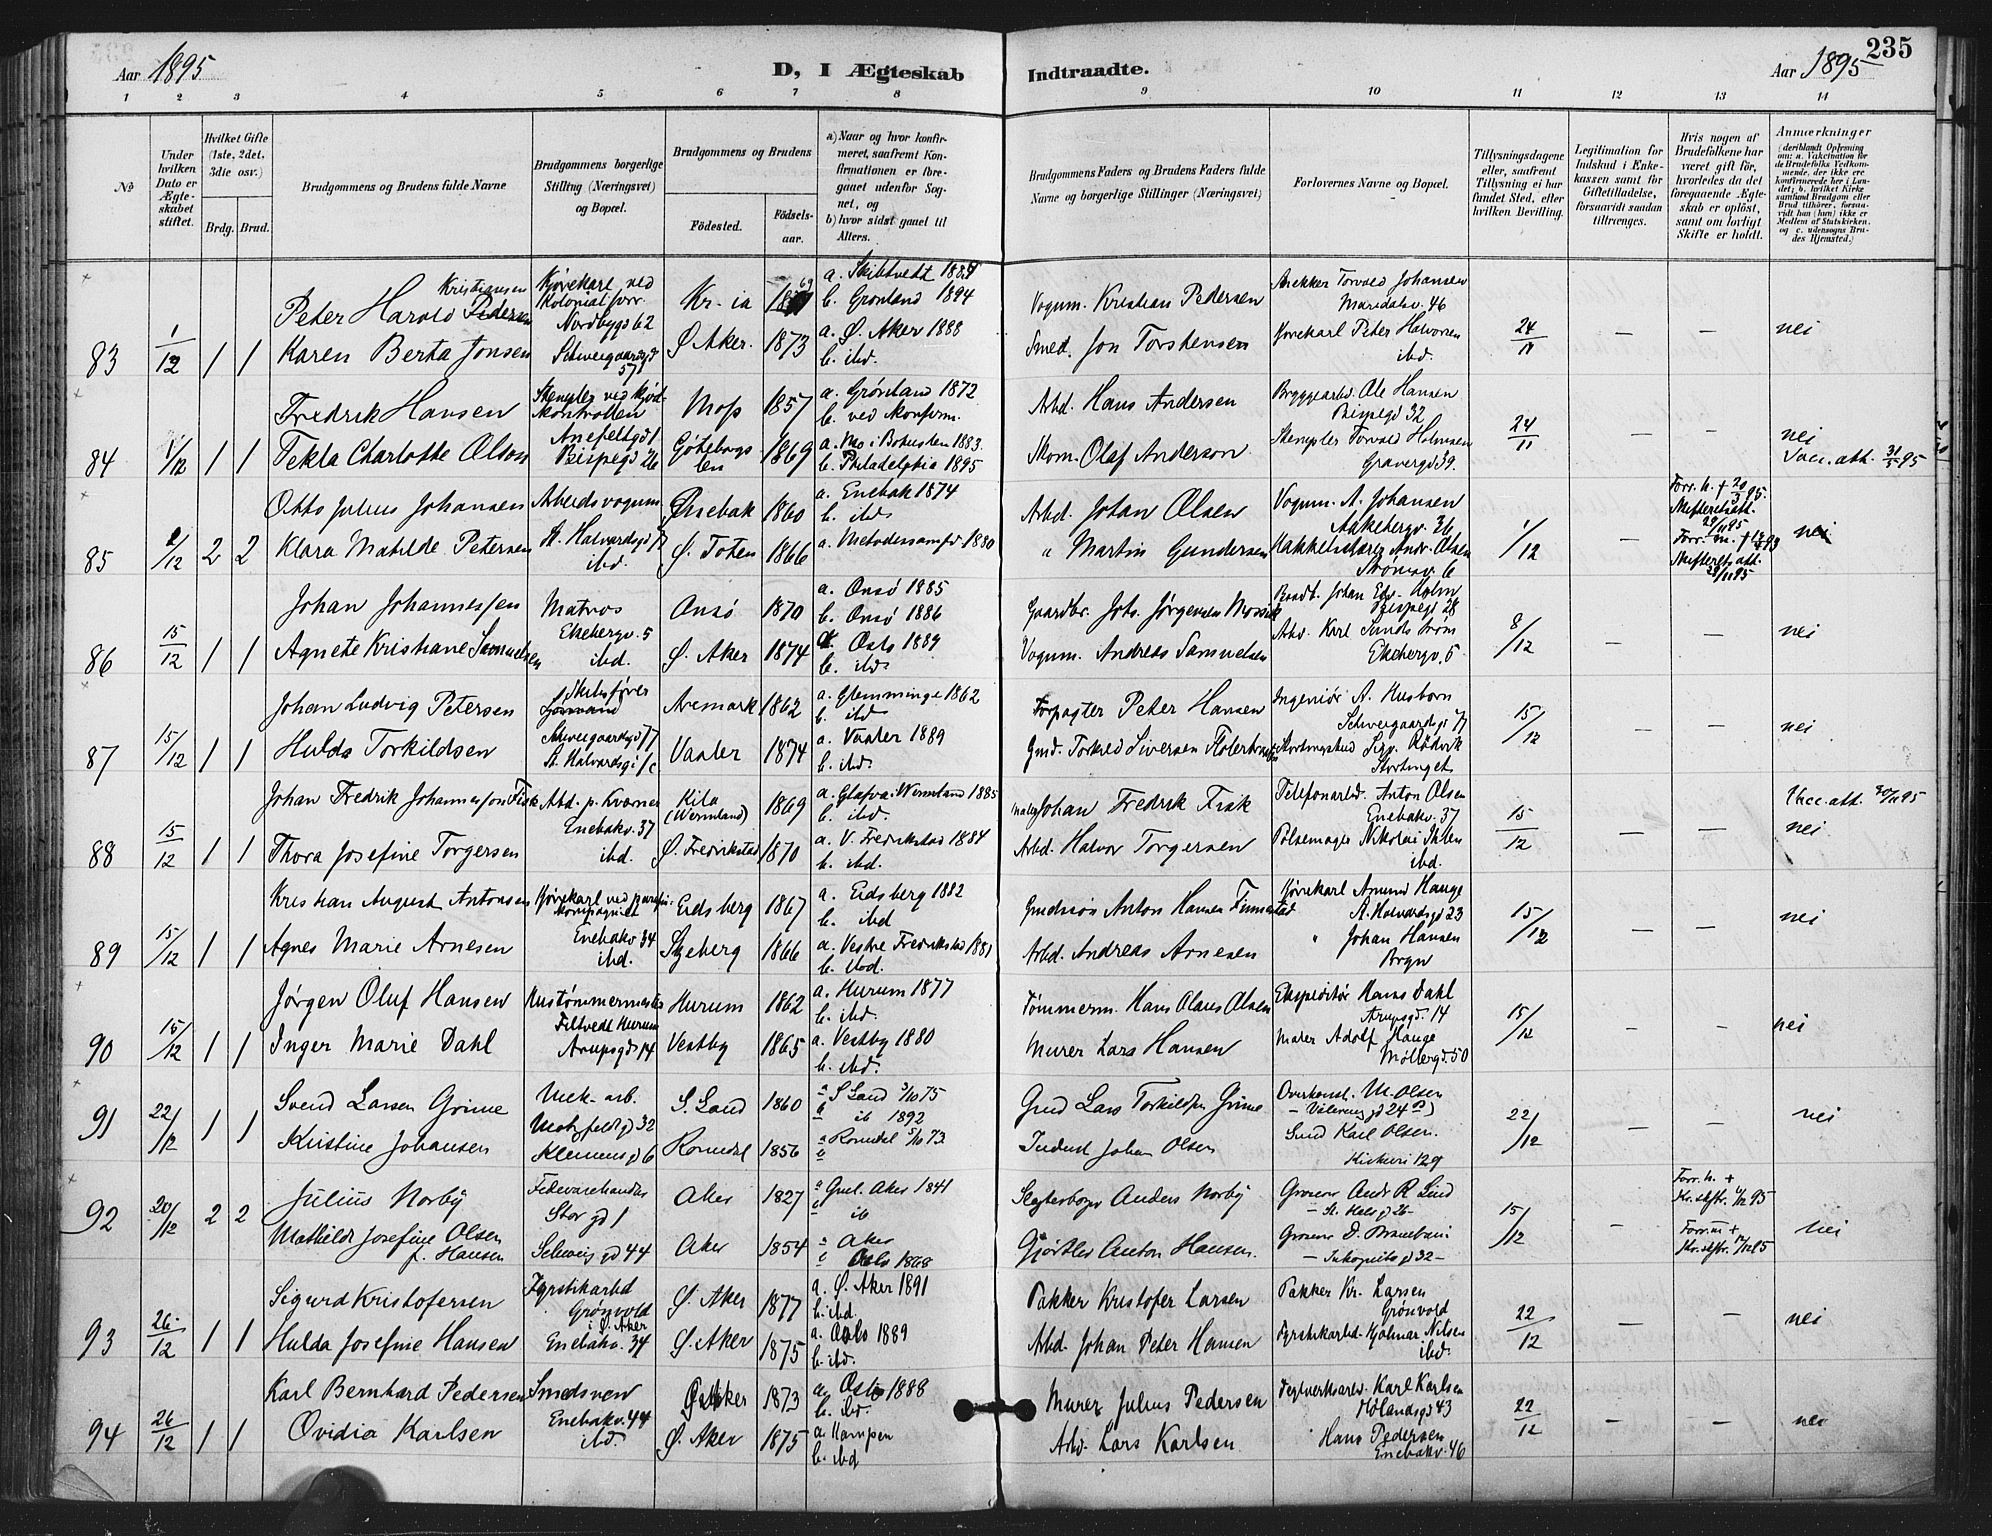 Aar 1895
D, I Ægteskab
Indtraadte.
Aar 1895
235
1 2 3 4 5 6 7 8 9 10 11 12 13 14
№
Under hvilken Dato er Ægteskabet stiftet.
Hvilket Gifte (1ste, 2det, 3die osv.)
Brdg. Brud.
Brudgommens og Brudens fulde Navne
Brudgommens borgerlige Stilling (Næringsvei) og Bopæl.
Brudgommens og Brudens
Fødested.
Fødselsaar.
a) Naar og hvor konfirmeret, saafremt Konfirmationen er foregaaet udenfor Sognet, og
b) hvor sidst gaaet til Alters.
Brudgommens Faders og Brudens Faders fulde Navne og borgerlige Stillinger (Næringsvei)
Forlovernes Navne og Bopæl.
Tillysningsdagene eller, saafremt Tillysning ei har fundet Sted, efter hvilken Bevilling.
Legitimation for Indskud i Enkekassen samt for Giftetilladelse, forsaavidt saadan tiltrænges.
Hvis nogen af Brudefolkene har været gift før, hvorledes da det foregaaende Ægteskab er opløst, samt om lovligt Skifte er holdt.
Anmærkninger (deriblandt Oplysning om: a. Vakcination for de Brudefolks Vedkommende, der ikke ere konfirmerede her i Landet; b. hvilket Kirkesamfund Brudgom eller Brud tilhører, forsaavidt han (hun) ikke er Medlem af Statskirken, og c. udensogns Brudes Hjemsted.)
83 1/12 1 1
Peter Harald Kristiansen Pedersen
Kjørekarl ved Kolonialforr. Nordbygd 62
Kr-ia 1869
a. Skibtvedt 1884
b. Grønland 1894
Vognm. Kristian Pedersen
Torvald Johansen Maridalsv. 46
Karen Berta Jonsen
Schweigaardsgd 57
Ø. Aker. 1873
a. Ø. Aker 1888
b. ibd.
Smed. Jon Torstensen
Kjørekarl Peter Halvorsen ibd.
24/11 — — nei
84 1/12 1 1
Fredrik Hansen
Stempler ved Kjødkontrollen
Moss 1857
a. Grønland 1872
b. ved Konfirm.
Arbd. Hans Andersen
Bryggearbd. Ole Hansen Bispegd 32
Tekla Charlotte Olson
Bispegd 26
Göteborgs len 1869
a. Mo i Bohuslen 1883.
b. Philadelphia 1895
Skom. Olaf Anderson
Stempler Torvald Holmsen Gravergd 39.
24/11 — — nei
Vacc. att. 31/5 95
85 2/12 2 2
Otto Julius Johansen
Arbeidsvognm.
Enebak 1860
a. Enebak 1874
b. ibd
Arbd. Johan Olsen
Vognm. A. Johansen Aakebergv. 36
Klara Matilde Petersen
St. Halvardsgd ibd.
Ø. Toten 1866
a. Metodesamfd 1880
" Martin Gundersen
Hakkelsskærer Andr. Olsen Strømsv. 6
1/12 —
Forr. h. † 20/3 95. Skifteretsatt. 29/11 95
Forr. m. † Skifteretsatt. 29/11 95
nei
86 15/12 1 1
Johan Johannessen
Matros Ekebergv. 5
Onsø 1870
a. Onsø 1885
b. Onsø 1886
Gaardbr. Johs. Jørgensen
Johan Edv. Holm Bispegd 28
Agnete Kristiane Samuelsen
ibd.
Ø. Aker 1874
a. Oslo 1889
b. ibd
Vognm. Andreas Samuelsen
Arbd. Karl Sundstrøm Ekebergv. 5
8/12 — — nei
87 15/12 1 1
Johan Ludvig Petersen
Skibsfører Schweigaardsgd 77
Aremark 1862
a. Glemminge 1862
b. ibd
Forpagter Peter Hansen
Ingeniør A. Husborn Schweigaardsgd 77
Hulda Torkildsen
St. Halvardsgd
Vaaler 1874
a. Vaaler 1889
b. ibd.
Gmd. Torkild Siversen
Stortingsbud Sigv. Rødvik Stortinget
15/12 — — nei
88 15/12 1 1
Johan Fredrik Johannesson Fisk
Arbd. p. Kværner Enebakv. 37
Kila (Wermland) 1869
a. Glafva i Wermland 1885
b. ibd.
Maler Johan Fredrik Fisk
Telefonarbd. Anton Olsen Enebakv. 37
Thora Josefine Torgersen
ibd.
Ø. Fredrikstad 1870
a. V. Fredrikstad 1884
b. ibd.
Arbd. Halvor Torgersen
Pølsemager Nikolai Ihlen ibd.
15/12 — —
Vacc. att. 95
nei
89 15/12 1 1
Kristian August Antonsen
Kjørekarl ved Enebakv 34
Eidsberg 1867
a. Eidsberg 1882
b. ibd
Anton Hansen
Kjørekarl Amund Hauge St. Halvardsgd 23
Agnes Marie Arnesen
ibd.
Skjeberg 1866
a. Vestre Fredrikstad 1881
b. ibd.
Arbd. Andreas Arnesen
" Johan Hansen Bryn
15/12 — — nei
90 15/12 1 1
Jørgen Oluf Hansen
Hustømmermester Filtvedt Hurum
Hurum 1862
a. Hurum 1877
b. ibd.
Tømmerm. Hans Olaus Olsen
Ekspeditør Hans Dahl Arupsgd. 14
Inger Marie Dahl
Arupsgd 14
Vestby 1865
a. Vestby 1880
b. ibd.
Murer Lars Hansen
Maler Adolf Hauge Møllergd. 50
15/12 — — nei
91 22/12 1 1
Svend Larsen Grime
Mek. arb. Motzfeldtgd 32
S. Land 1860
a S Land 3/10 75
b ib 1892
Gmd Lars Torkildsen Grime
Overkonst. M. Olsen – Vålerenggd 24 –
Kristine Johansen
Klemensgd 6
Romedal 1856
a Romedal 5/10 73
b "
Inderst Johan Olsen
Smed Karl Olsen.
22/12 — — nei
92 20/12 2 2
Julius Norby
Fedevarehandler Storgd 1
Aker 1827
a Aker 1841
b ib
Anders Norby
Grosserer Andr R Lind – St. Halvgd 26 –
Mathilde Josefine Olsen f. Hansen
Schweigd 44
Aker 1854
a Aker
b Oslo 1868
Gjørtler Anton Hansen.
Grosserer D. Branebani – Inkognitogd 32 –
15/12
Forr. h. †
Forr. m †
nei
93 26/12 1 1
Sigurd Kristofersen
Fyrstikarbd Grønvold i Ø. Aker
Ø. Aker 1877
a. Ø. Aker 1891
b. ibd.
Pakker Kristofer Larsen
Pakker Kr. Larsen Grønvold
Hulda Josefine Hansen
Enebakv. 34
Ø. Aker 1875
a. Oslo 1889
b. ibd.
Arbd. Johan Peter Hansen
Fyrstikarbd. Hjalmar Nilsen ibd.
22/12 — — nei
94 26/12 1 1
Karl Bernhard Pedersen
Smedsvend Enebakv. 44
Ø. Aker 1873
a. Oslo 1888
b. ibd.
Murer Julius Pedersen
Teglverksarb. Karl Karlsen Hølandsgd 43
Ovidia Karlsen
ibd.
Ø. Aker 1875
a. Kampen
b. ibd
Arbd. Lars Karlsen
" Hans Pedersen Enebakv. 46
22/12 — — nei